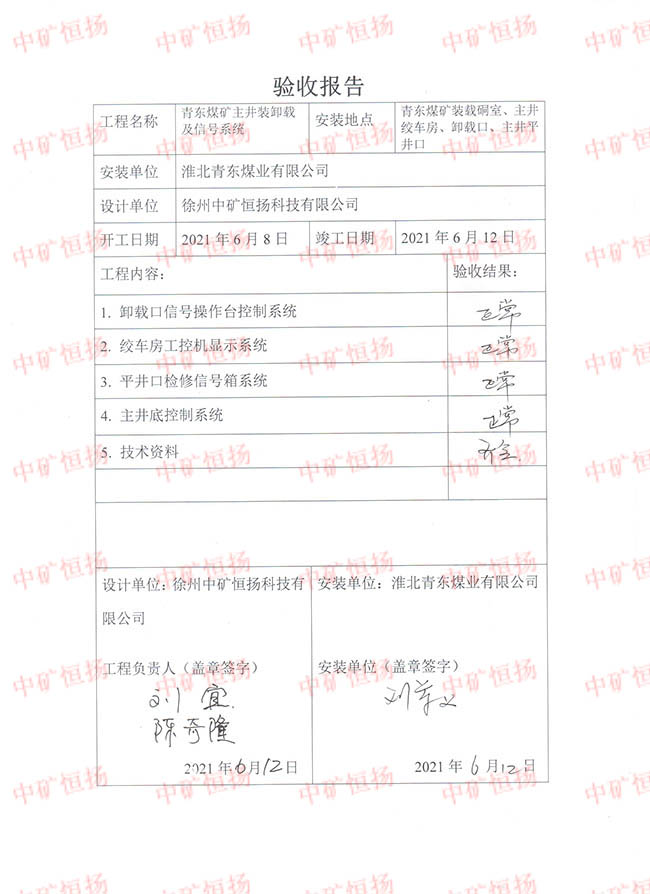 验收报告
工程名称
青东煤矿主井装卸载
及信号系统
安装地点
青东煤矿装载硐室、主井
绞车房、卸载口、主井平
井口
安装单位
淮北青东煤业有限公司
设计单位
徐州中矿恒扬科技有限公司
开工日期
2021 年 6 月 8 日
竣工日期
2021 年 6 月 12 日
工程内容:
验收结果:
1. 卸载口信号操作台控制系统
正常
2. 绞车房工控机显示系统
正常
3. 平井口检修信号箱系统
正常
4. 主井底控制系统
正常
5. 技术资料
齐全
设计单位:徐州中矿恒扬科技有
限公司
工程负责人（盖章签字）
刘宜
陈奇隆
2021 年 6 月 12 日
安装单位：淮北青东煤业有限公司
安装单位（盖章签字）
2021 年 6 月 12 日
中矿恒扬